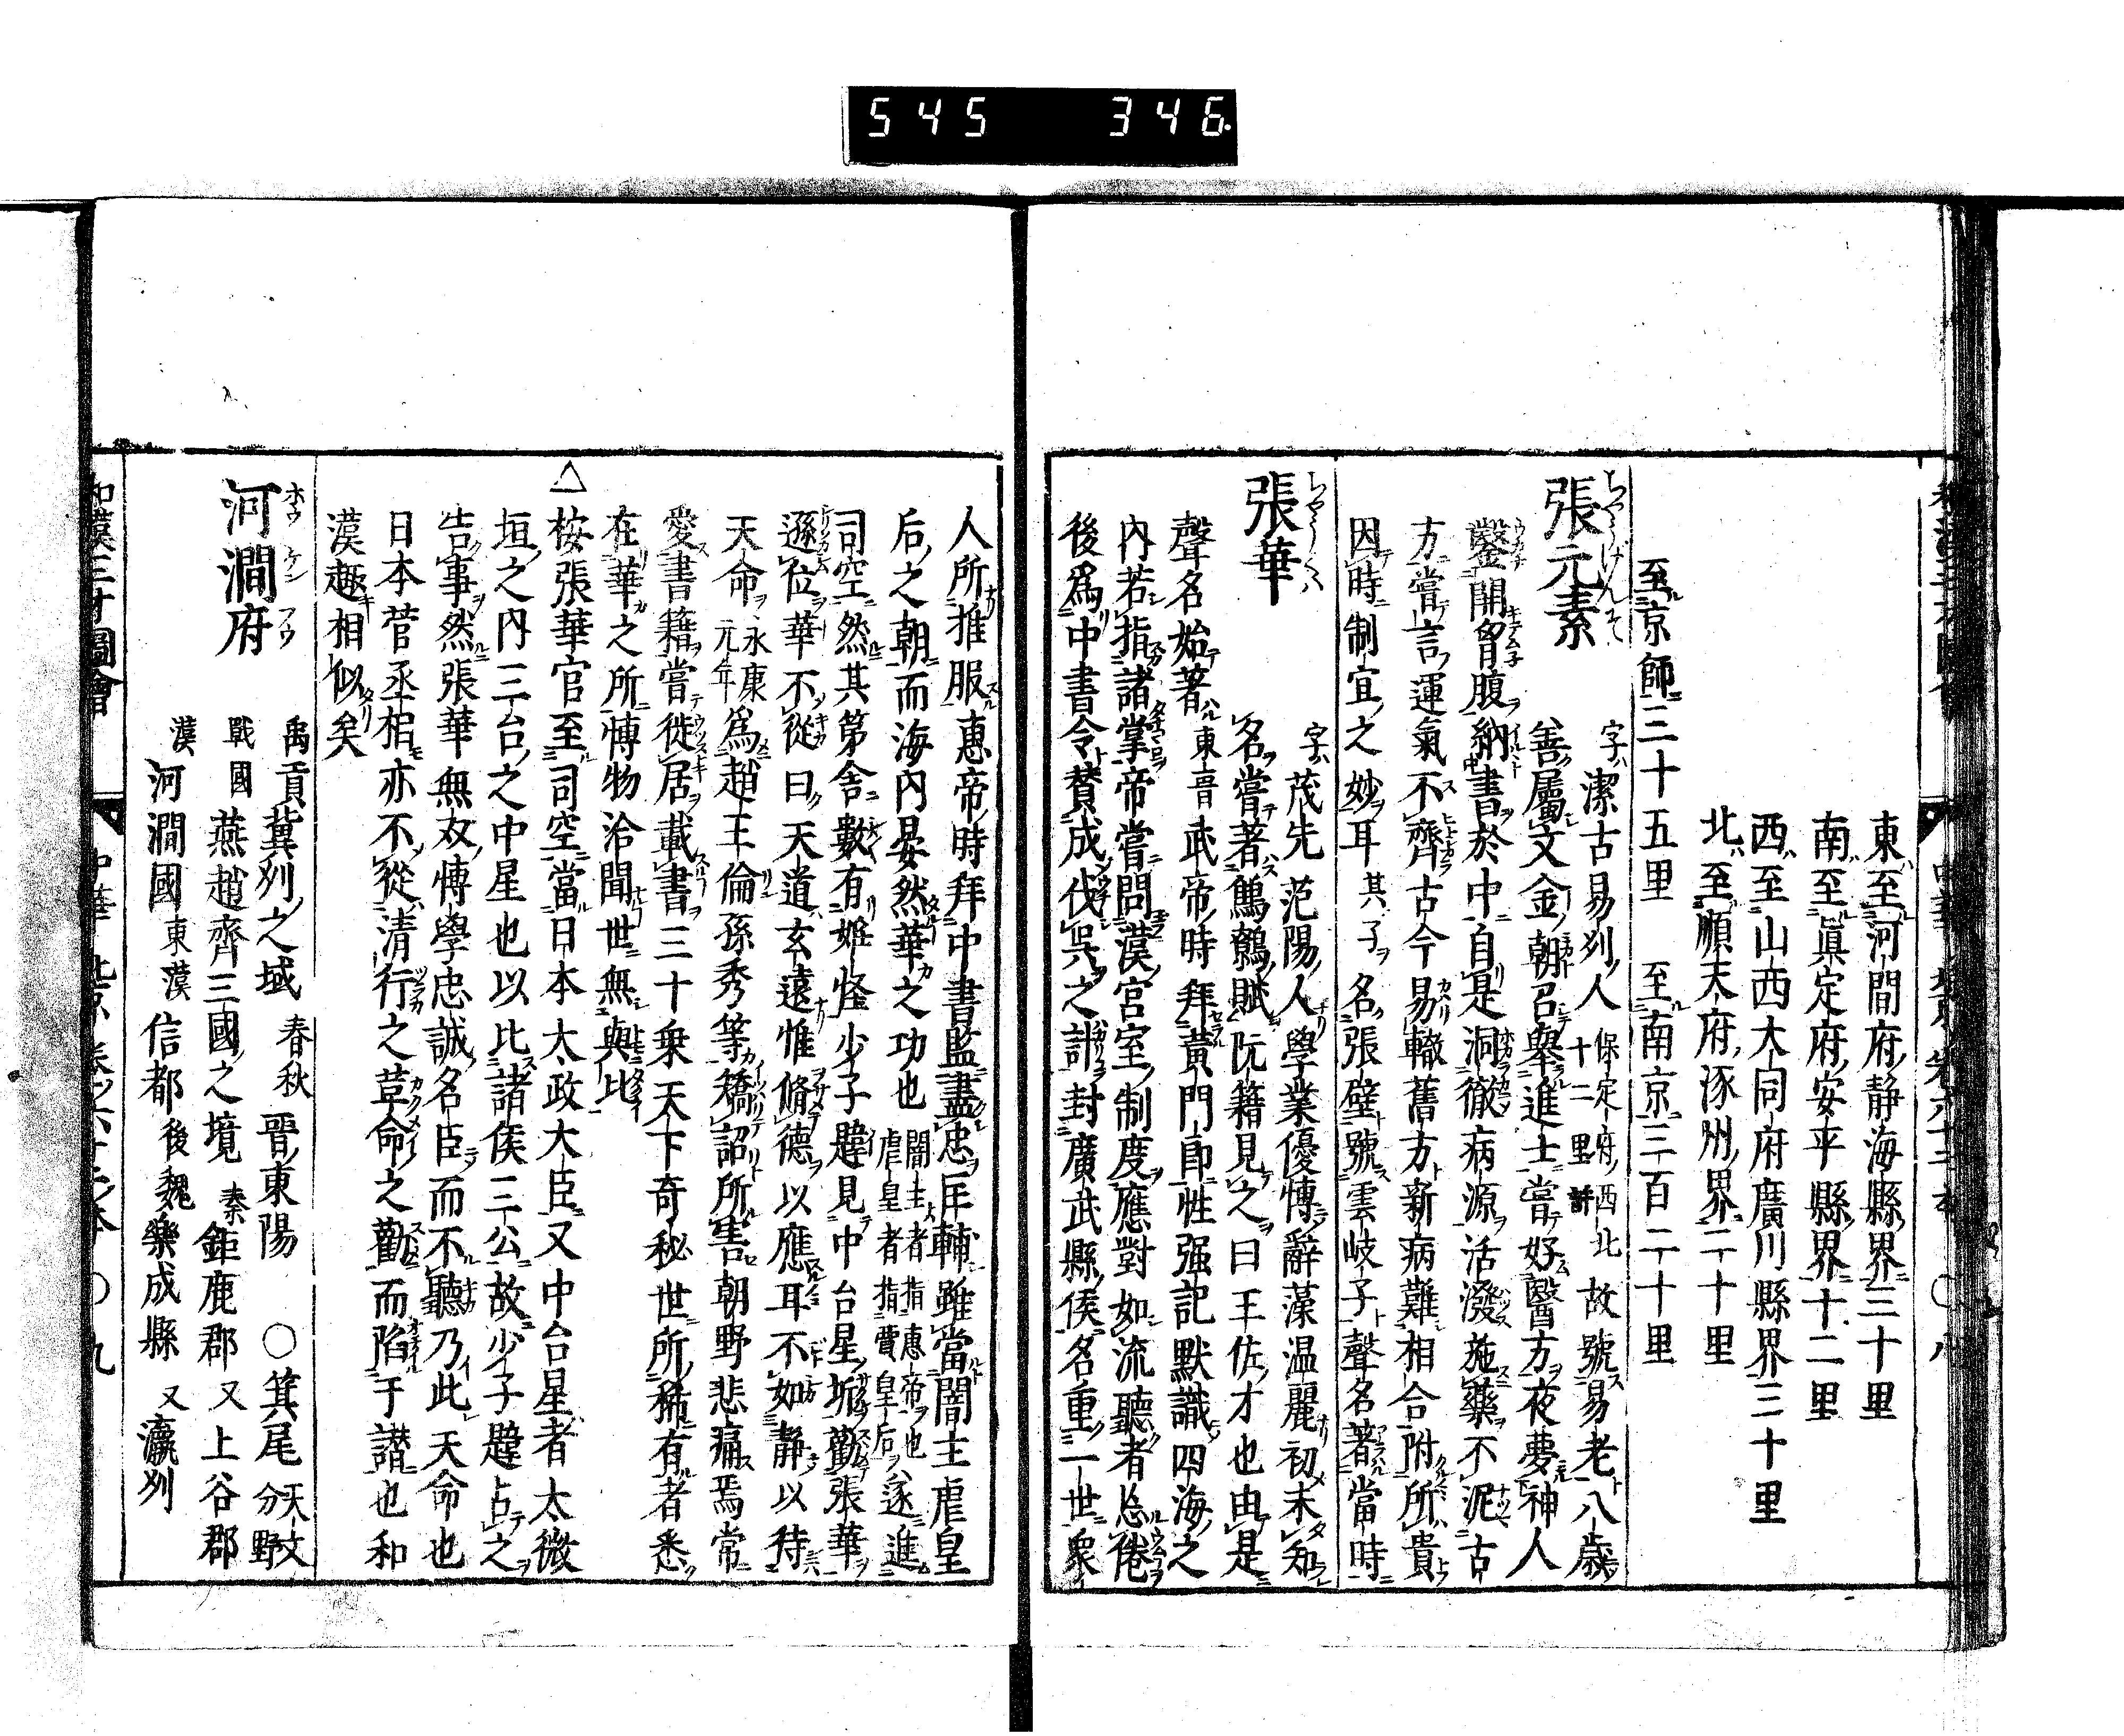 545 346
東至河間府靜海縣界三十里
南至眞定府安平縣界十二里
西至山西大同府廣川縣界三十里
北至順天府涿州界二十里
至京師三十五里 至南京三百二十里
張元素
字潔古易刕人保定府西北十二里許故號易老八歳
善屬文金朝召舉進士嘗好醫方夜夢神人
鑿開胷腹納書於中自是洞徹病源活潑施藥不泥古
方嘗言運氣不齊古今易轍舊方新病難相合附所貴
因時制宜之妙耳其子名張璧號雲岐子聲名著當時
張華
字茂先范陽人學業優愽辭藻温麗初未知
名嘗著鷦鷯賦阮籍見之曰王佐才也由是
聲名始著東晋武帝時拜黃門郎性强記默識四海之
內若指諸掌帝嘗問漢宮室制度應對如流聽者忘倦
後爲中書令賛成伐呉之計封廣武縣侯名重一世衆
人所推服惠帝時拜中書監盡忠匡輔雖當闇主虐皇
后之朝而海內晏然華之功也闇主者指惠帝也虐皇者指賈皇后遂進
司空然其第舍數有妖怪少子韙見中台星坼勸張華
遜位華不從曰天道玄遠惟脩德以應耳不如靜以待
天命永康元年爲趙王倫孫秀等矯詔所害朝野悲痛焉常
愛書籍嘗徙居載書三十乗天下奇秘世所稀有者悉
在華之所愽物洽聞世無與比
△桉張華官至司空當日本太政大臣又中台星者太微
垣之內三台之中星也以比諸侯三公故少子韙占之
告事然張華無双愽學忠誠名臣而不聽乃此天命也
日本菅丞相亦不從清行之革命之勸而陷于譖也和
漢趣相似矣
河澗府
禹貢冀刕之域 春秋晉東陽 ○箕尾天文分野
戰國燕趙齊三國之境 秦鉅鹿郡又上谷郡
漢河澗國 東漢信都 後魏樂成縣 又瀛刕
和漢三才圖會 中華 北京 卷ノ六十二本 ○九